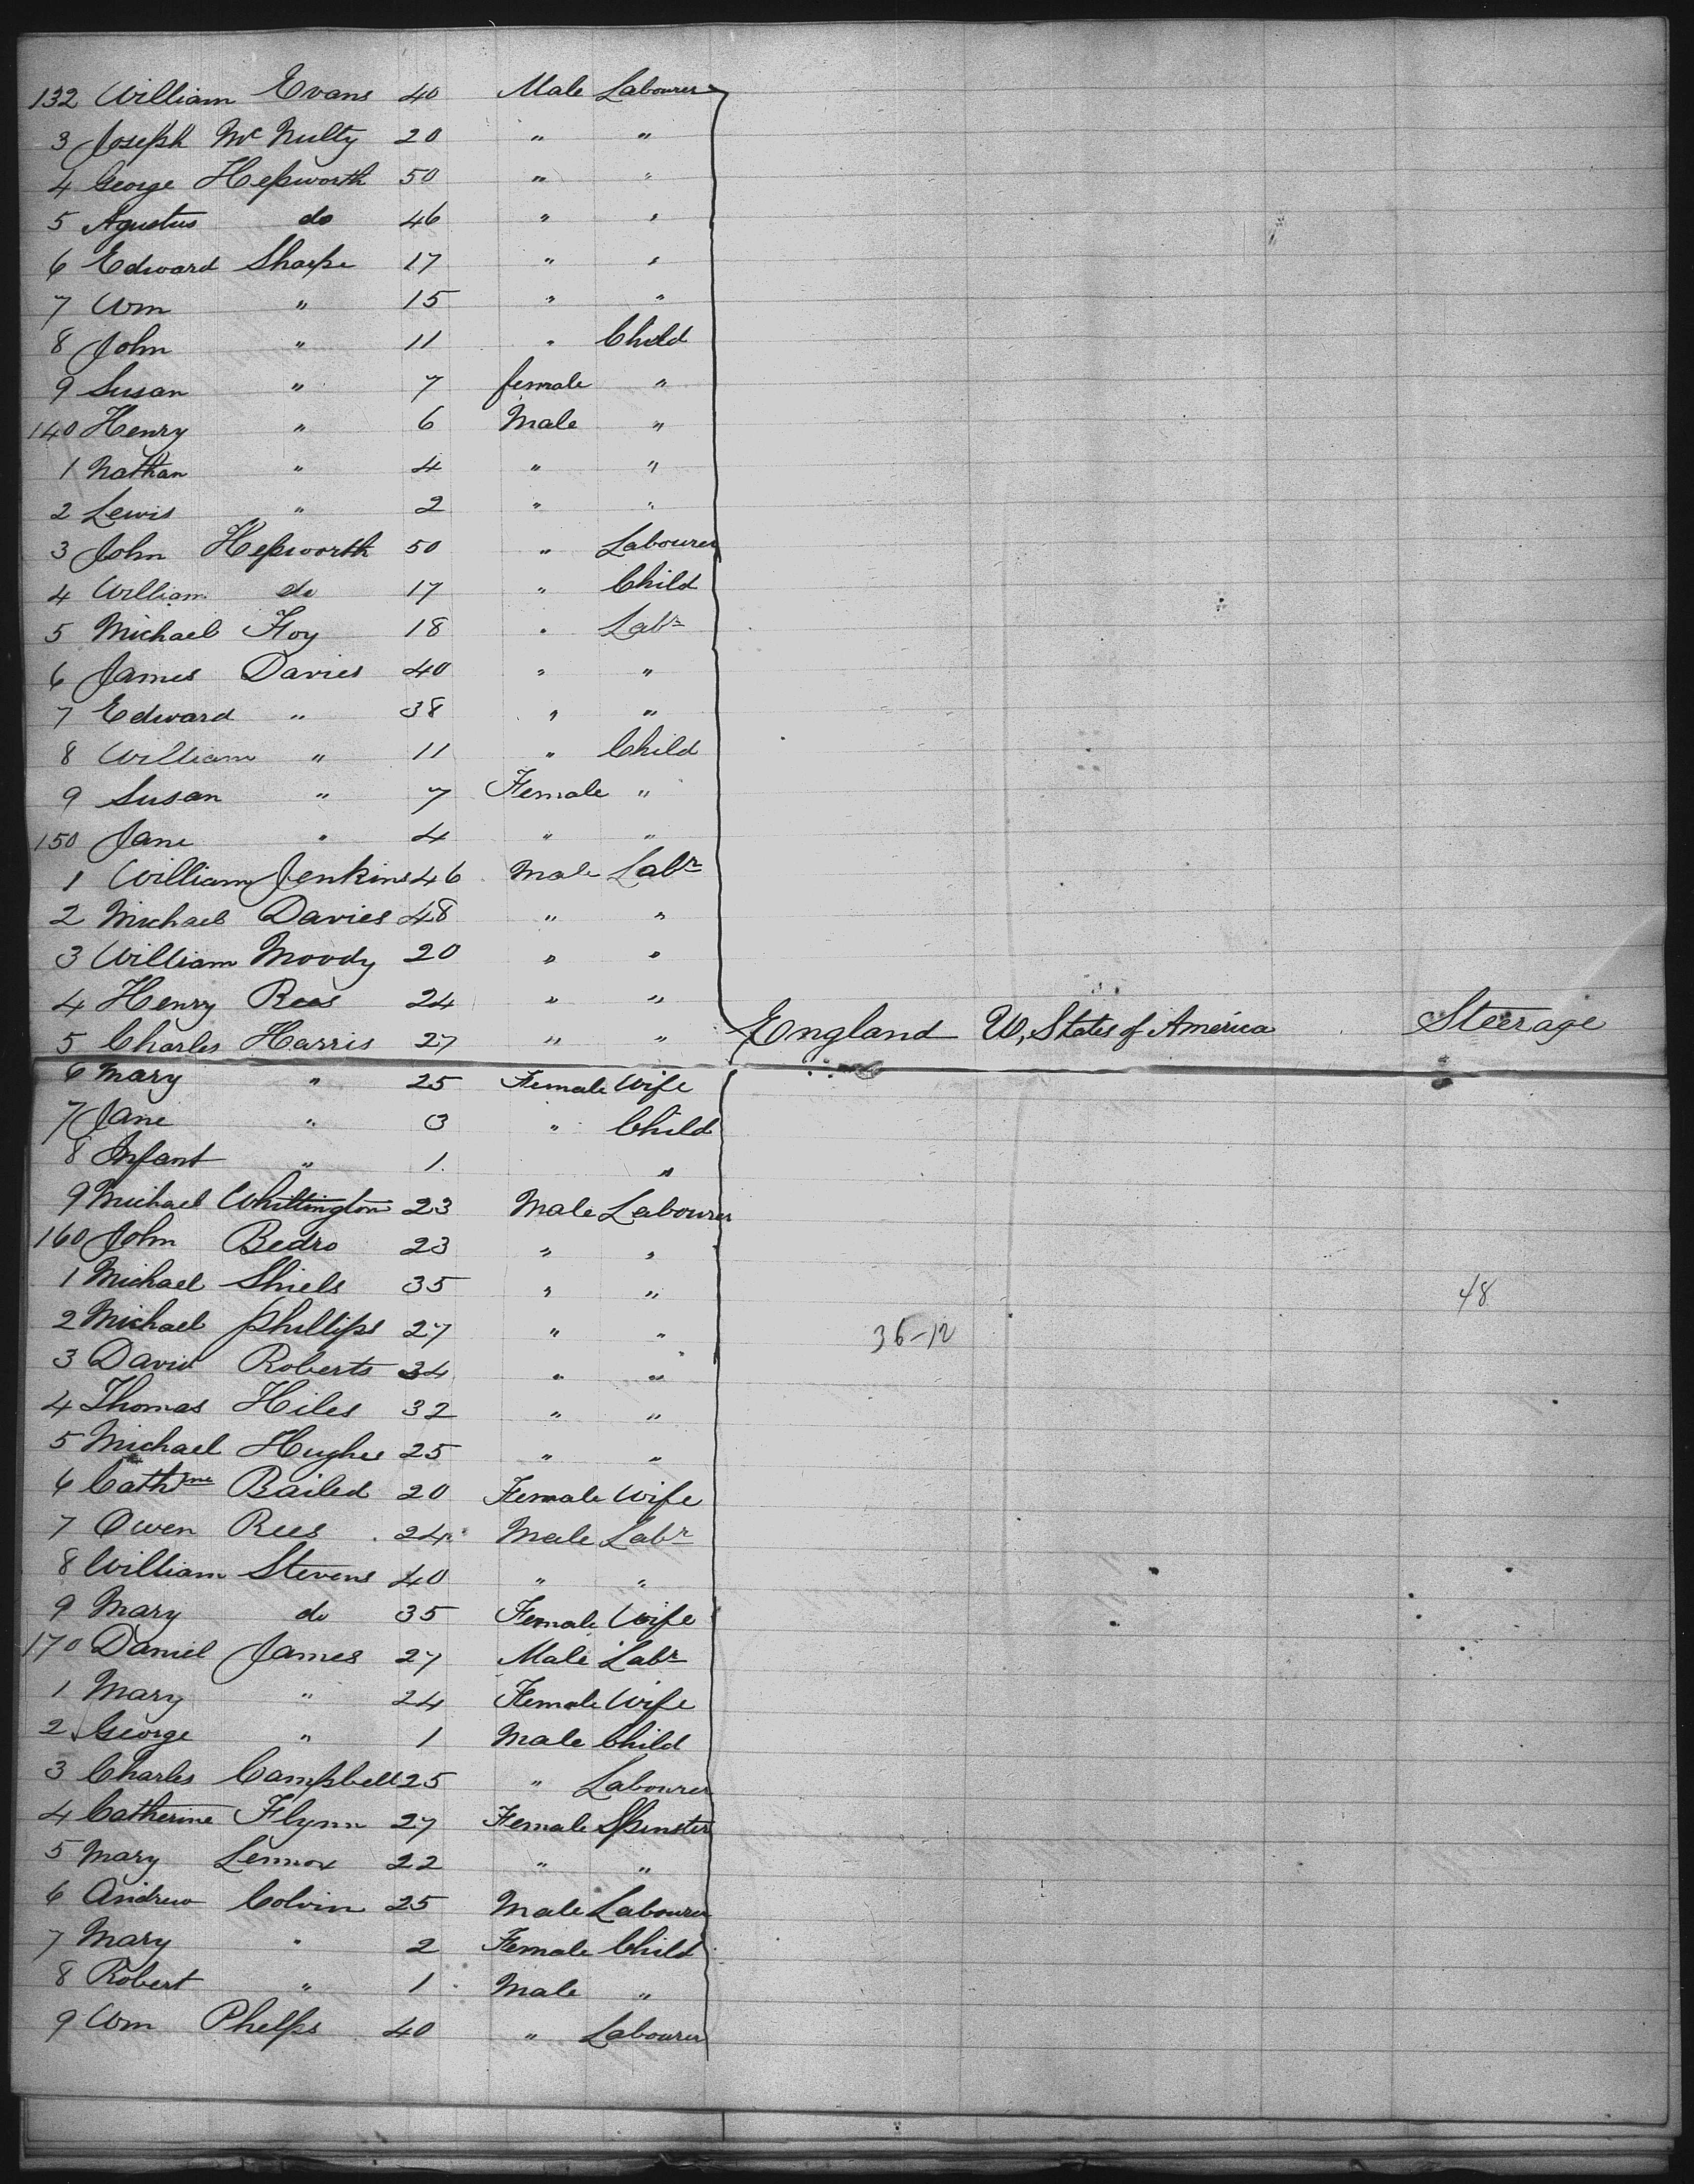 132 William Evans 40 Male Labourer
3 Joseph Mc Nulty 20 " "
4 George Hepworth 50 " "
5 Agustus do 46 " "
6 Edward Sharpe 17 " "
7 Wm " 15 " "
8 John " 11 " Child
9 Susan " 7 female "
140 Henry " 6 Male "
1 Nathan " 4 " "
2 Lewis " 2 " "
3 John Hepworth 50 " Labourer
4 William do 17 " Child
5 Michael Foy 18 " Labr
6 James Davies 40 " "
7 Edward " 38 " "
8 William " 11 " Child
9 Susan " 7 Female "
150 Jane " 4 " "
1 William Jenkins 46 Male Labr
2 Michael Davies 48 " "
3 William Moody 20 " "
4 Henry Rees 24 " "
5 Charles Harris 27 " " England U, States of America Steerage
6 Mary " 25 Female Wife
7 Jane " 3 " Child
8 Infant " 1 "
9 Michael Whittington 23 Male Labourer
160 John Bedro 23 " "
1 Michael Shiels 35 " " 48
2 Michael Phillips 27 " " 36-12
3 David Roberts 34 " "
4 Thomas Hiles 32 " "
5 Michael Hughes 25 " "
6 Cathine Bailed 20 Female Wife
7 Owen Rees 24 Male Labr
8 William Stevens 40 " "
9 Mary do 35 Female Wife
170 Daniel James 27 Male Labr
1 Mary " 24 Female Wife
2 George " 1 Male Child
3 Charles Campbell 25 " Labourer
4 Catherine Flynn 27 Female Spinster
5 Mary Lennox 22 " "
6 Andrew Colvin 25 Male Labourer
7 Mary " 2 Female Child
8 Robert " 1 Male "
9 Wm Phelps 40 " Labourer